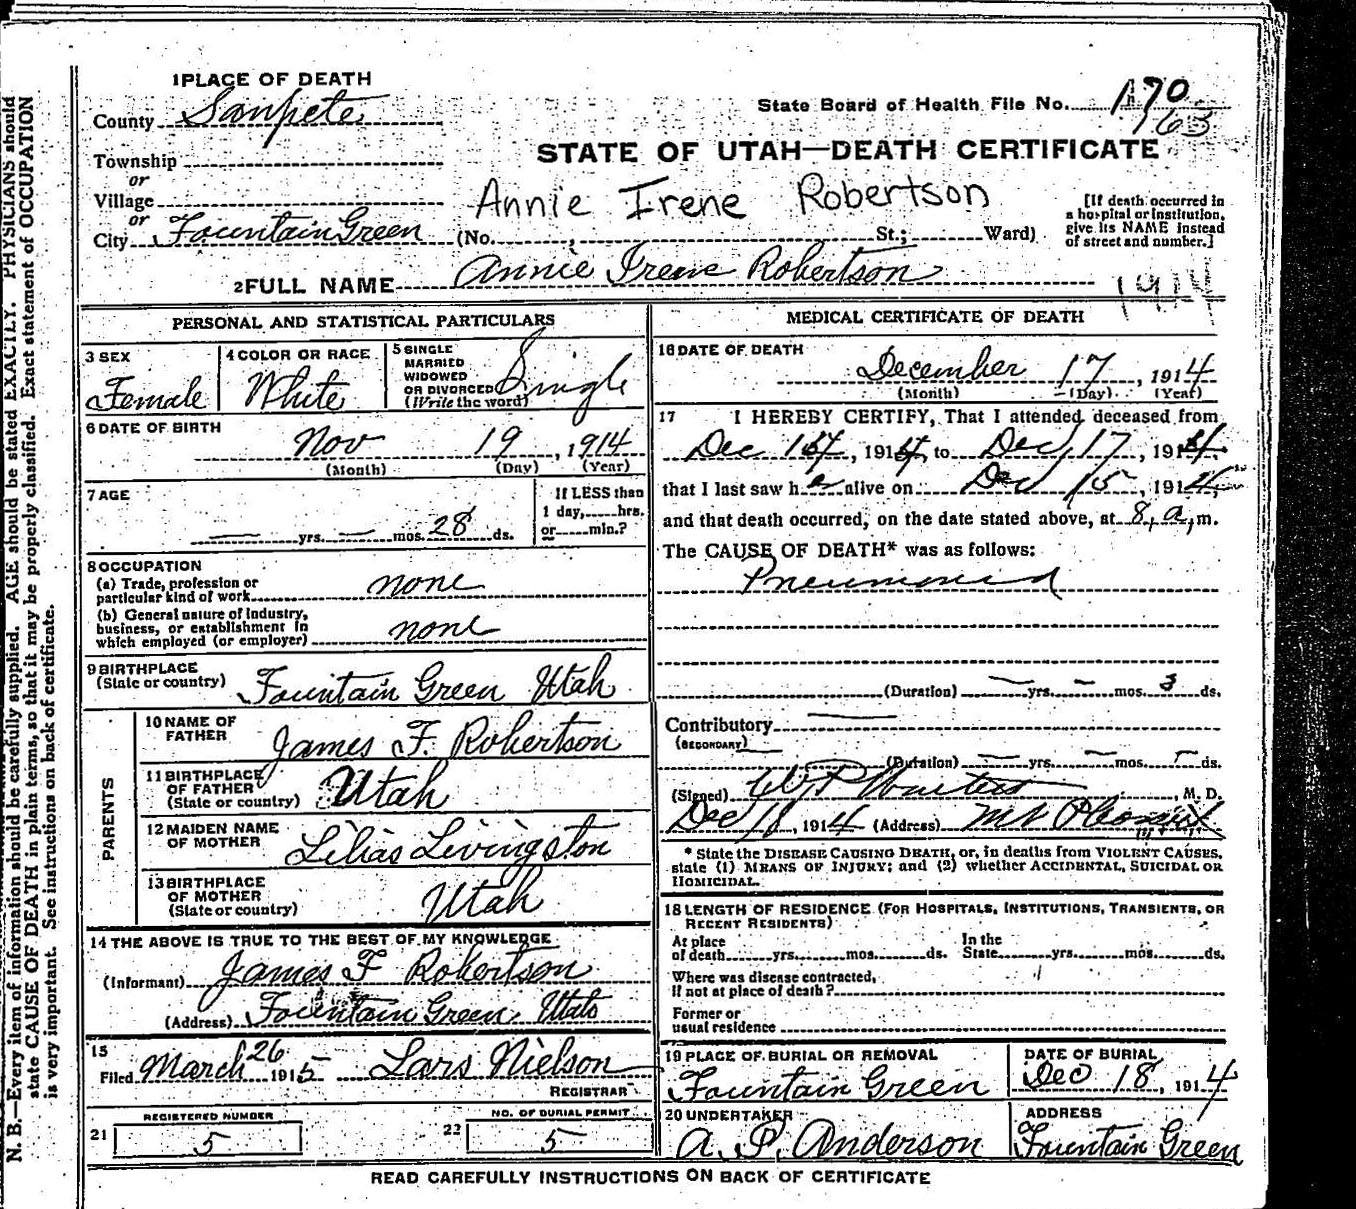 1 PLACE OF DEATH
County Sanpete
State Board of Health File No. 170
163
Township
or
STATE OF UTAH—DEATH CERTIFICATE
Village
or
Annie Irene Robertson
[If death occurred in a hospital or institution, give its NAME instead of street and number.]
City Fountain Green (No. , St.; Ward)
2 FULL NAME Annie Irene Robertson
1914
PERSONAL AND STATISTICAL PARTICULARS
3 SEX Female
4 COLOR OR RACE White
5 SINGLE MARRIED WIDOWED OR DIVORCED (Write the word) Single
6 DATE OF BIRTH
Nov 19, 1914
(Month) (Day) (Year)
7 AGE
— yrs. — mos. 28 ds.
If LESS than 1 day, hrs. or min.?
8 OCCUPATION
(a) Trade, profession or particular kind of work none
(b) General nature of industry, business, or establishment in which employed (or employer) none
9 BIRTHPLACE (State or country) Fountain Green Utah
PARENTS
10 NAME OF FATHER James F. Robertson
11 BIRTHPLACE OF FATHER (State or country) Utah
12 MAIDEN NAME OF MOTHER Lilias Livingston
13 BIRTHPLACE OF MOTHER (State or country) Utah
14 THE ABOVE IS TRUE TO THE BEST OF MY KNOWLEDGE
(Informant) James F Robertson
(Address) Fountain Green Utah
15
Filed March 26 1915 Lars Nielson
REGISTRAR
REGISTERED NUMBER
21 5
NO. OF BURIAL PERMIT
22 5
MEDICAL CERTIFICATE OF DEATH
16 DATE OF DEATH
December 17, 1914
(Month) (Day) (Year)
17 I HEREBY CERTIFY, That I attended deceased from
Dec 14, 1914, to Dec 17, 1914,
that I last saw h alive on Dec 15, 1914,
and that death occurred, on the date stated above, at 8, a, m.
The CAUSE OF DEATH* was as follows:
Pneumonia
(Duration) — yrs. — mos. 3 ds.
Contributory —
(SECONDARY)
(Duration) — yrs. — mos. — ds.
(Signed) W P , M. D.
Dec 18, 1914 (Address) Mt Pleasant
* State the DISEASE CAUSING DEATH, or, in deaths from VIOLENT CAUSES, state (1) MEANS OF INJURY; and (2) whether ACCIDENTAL, SUICIDAL OR HOMICIDAL.
18 LENGTH OF RESIDENCE (FOR HOSPITALS, INSTITUTIONS, TRANSIENTS, OR RECENT RESIDENTS)
At place of death yrs. mos. ds. In the State yrs. mos. ds.
Where was disease contracted, if not at place of death?
Former or usual residence
19 PLACE OF BURIAL OR REMOVAL
Fountain Green
DATE OF BURIAL
Dec 18, 1914
20 UNDERTAKER
A. P. Anderson
ADDRESS
Fountain Green
READ CAREFULLY INSTRUCTIONS ON BACK OF CERTIFICATE
N. B.—Every item of information should be carefully supplied. AGE should be stated EXACTLY. PHYSICIANS should
state CAUSE OF DEATH in plain terms, so that it may be properly classified. Exact statement of OCCUPATION
is very important. See instructions on back of certificate.